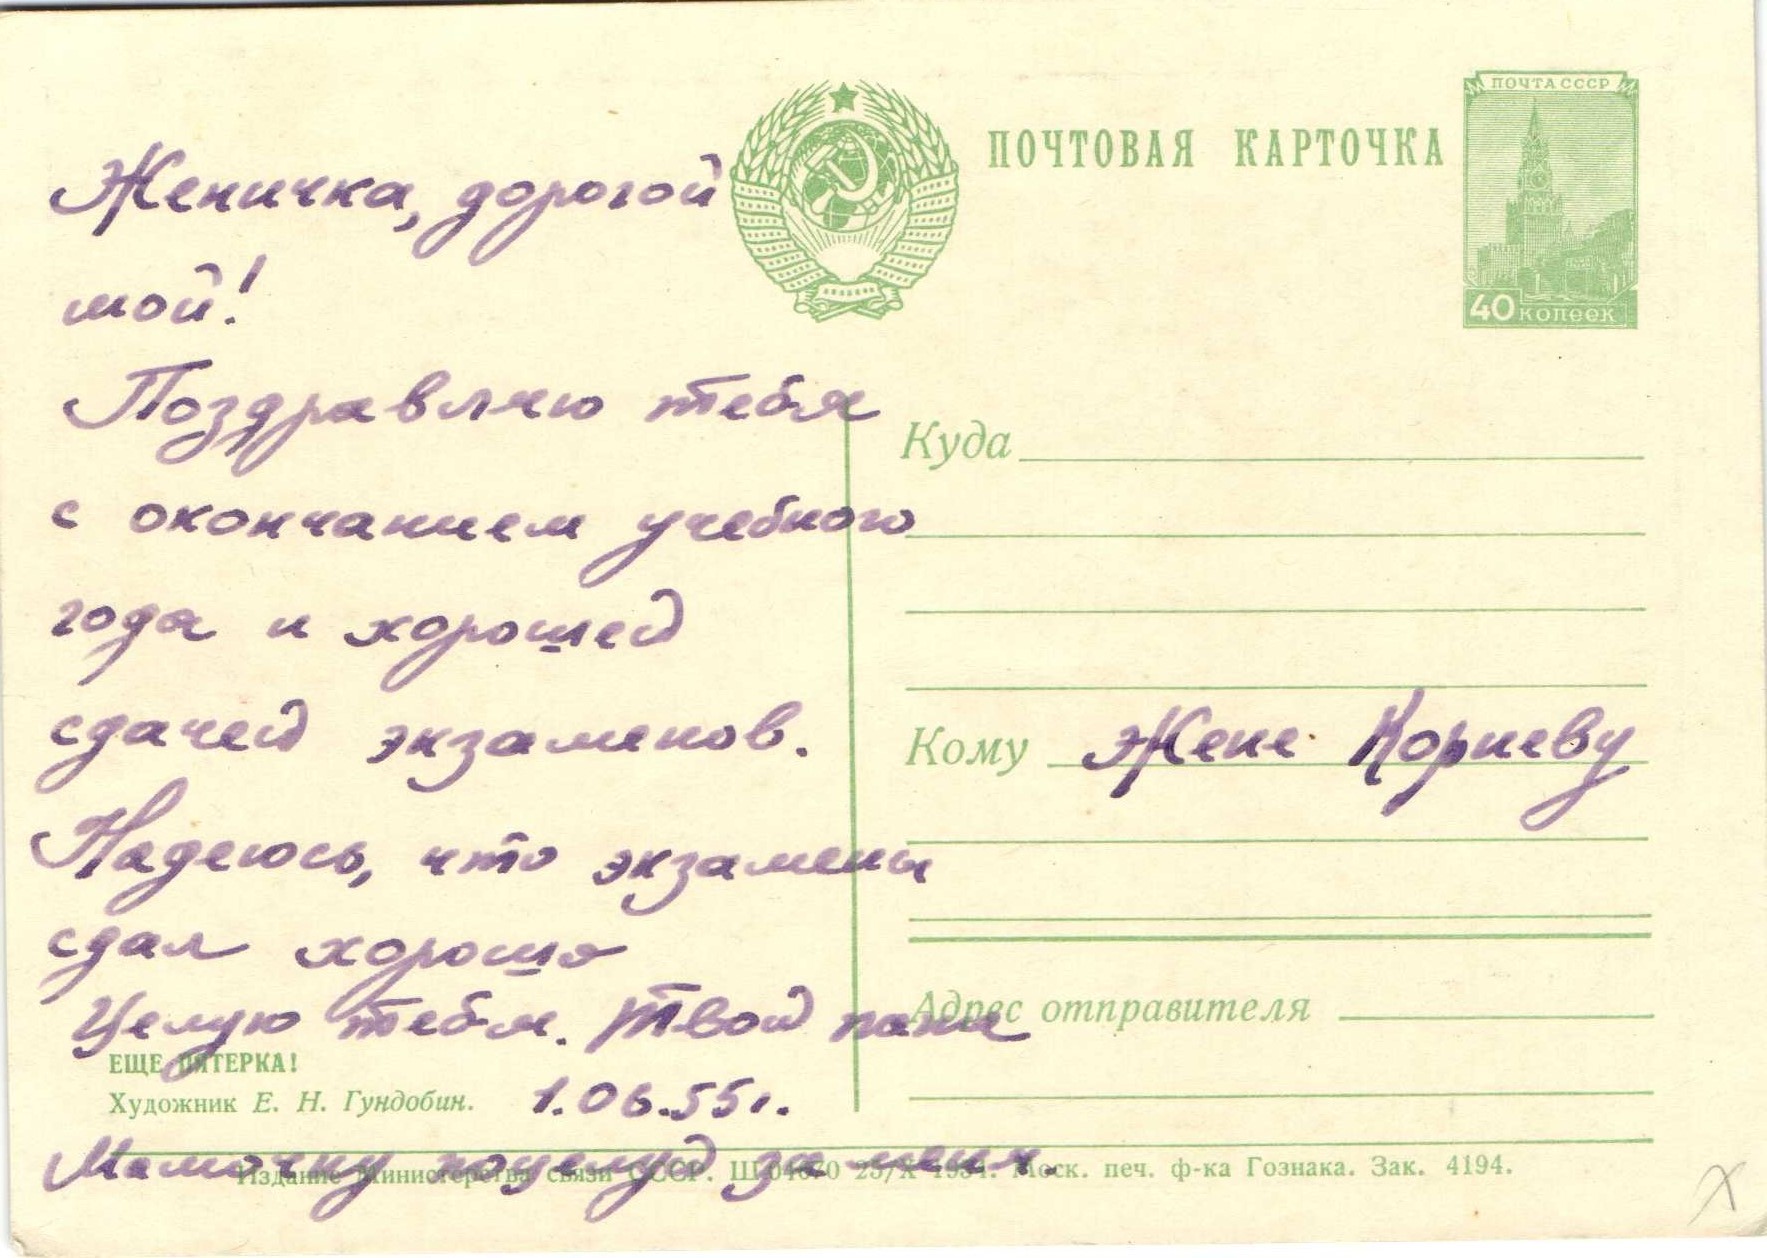 ПОЧТОВАЯ КАРТОЧКА
ПОЧТА СССР
40 КОПЕЕК
Женичка, дорогой
мой!
Поздравляю тебя
с окончанием учебного
года и хорошей
сдачей экзаменов.
Надеюсь, что экзамены
сдал хорошо
Целую тебя. Твой папа
1.06.55г.
Мамочку поцелуй за меня.
Куда
Кому Жене Корневу
Адрес отправителя
ЕЩЕ ПЯТЕРКА!
Художник Е. Н. Гундобин.
Издание Министерства связи СССР. Ш-04670 25/X 1954. Моск. печ. ф-ка Гознака. Зак. 4194.